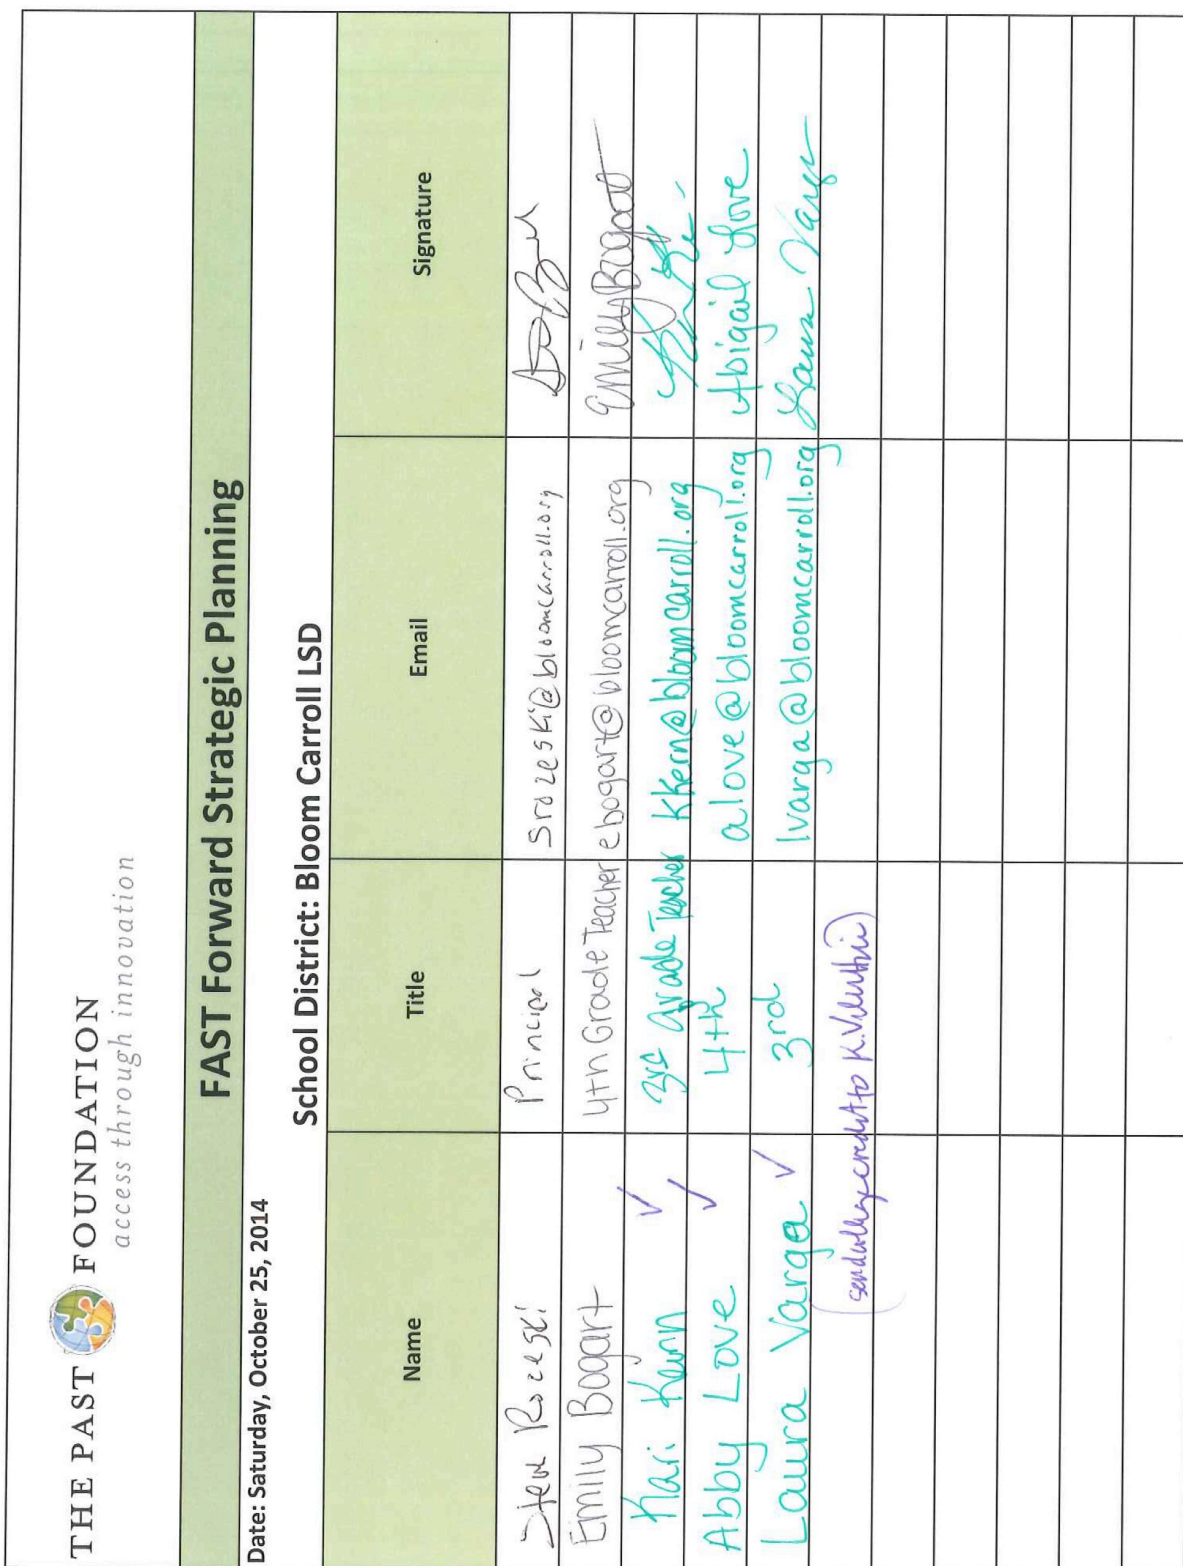 THE PAST FOUNDATION
access through innovation
FAST Forward Strategic Planning
Date: Saturday, October 25, 2014
School District: Bloom Carroll LSD
Name Title Email Signature
Steve Rozeski Principal srozeski@bloomcarroll.org
Emily Bogart 4th Grade Teacher ebogart@bloomcarroll.org Emily Bogart
Kari Kern 3rd grade Teacher kkern@bloomcarroll.org
Abby Love 4th alove@bloomcarroll.org Abigail Love
Laura Varga 3rd lvarga@bloomcarroll.org Laura Varga
credit to K.